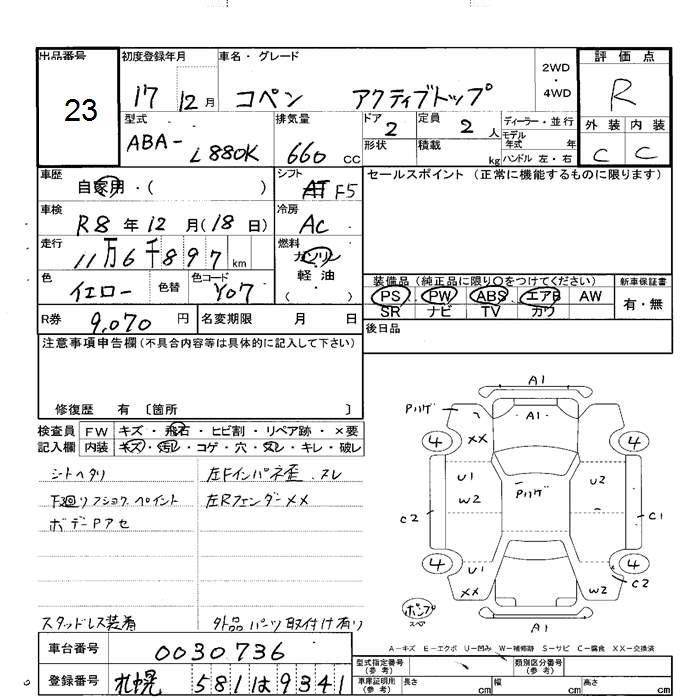 出品番号 初度登録年月 車名・グレード 評価点
23 17 12月 コペン アクティブトップ 2WD ・ 4WD R
型式 排気量 ドア 定員 ディーラー・並行 外装 内装
ABA- L880K 660 CC 2 2 人 モデル年式 年 C C
形状 積載 kg ハンドル 左・右
車歴 シフト セールスポイント (正常に機能するものに限ります)
自家用・( ) AT F5
車検 冷房
R8年12月(18日) AC
走行 燃料
11万6千897km ガソリン
色 色替 色コード 軽油
イエロー Y07 ( )
装備品 (純正品に限り○をつけてください) 新車保証書
PS PW ABS エアB AW 有・無
SR ナビ TV カワ
R券 9,070 円 名変期限 月 日
後日品
注意事項申告欄(不具合内容等は具体的に記入して下さい)
修復歴 有 〔箇所 〕
検査員 FW キズ・飛石・ヒビ割・リペア跡・×要
記入欄 内装 キズ・汚レ・コゲ・穴・欠レ・キレ・破レ
シートヘタリ 左Fインパネ歪.スレ
下廻リフショク.ペイント 左Rフェンダー××
ボデーPアセ
スタッドレス装着 外品パーツ取付け有り
A1
Pハゲ A1
4 ×× 4
U1 U2
W2 Pハゲ
C2 C1
4 U1 4
×× W2 C2
ポンプ
スペ A1
A-キズ E-エクボ U-凹み W-補修跡 S-サビ C-腐食 XX-交換済
車台番号 0030736
型式指定番号(参考) 類別区分番号(参考)
登録番号 札幌 581 は 9341
車庫証明用(参考) 長さ cm 幅 cm 高さ cm